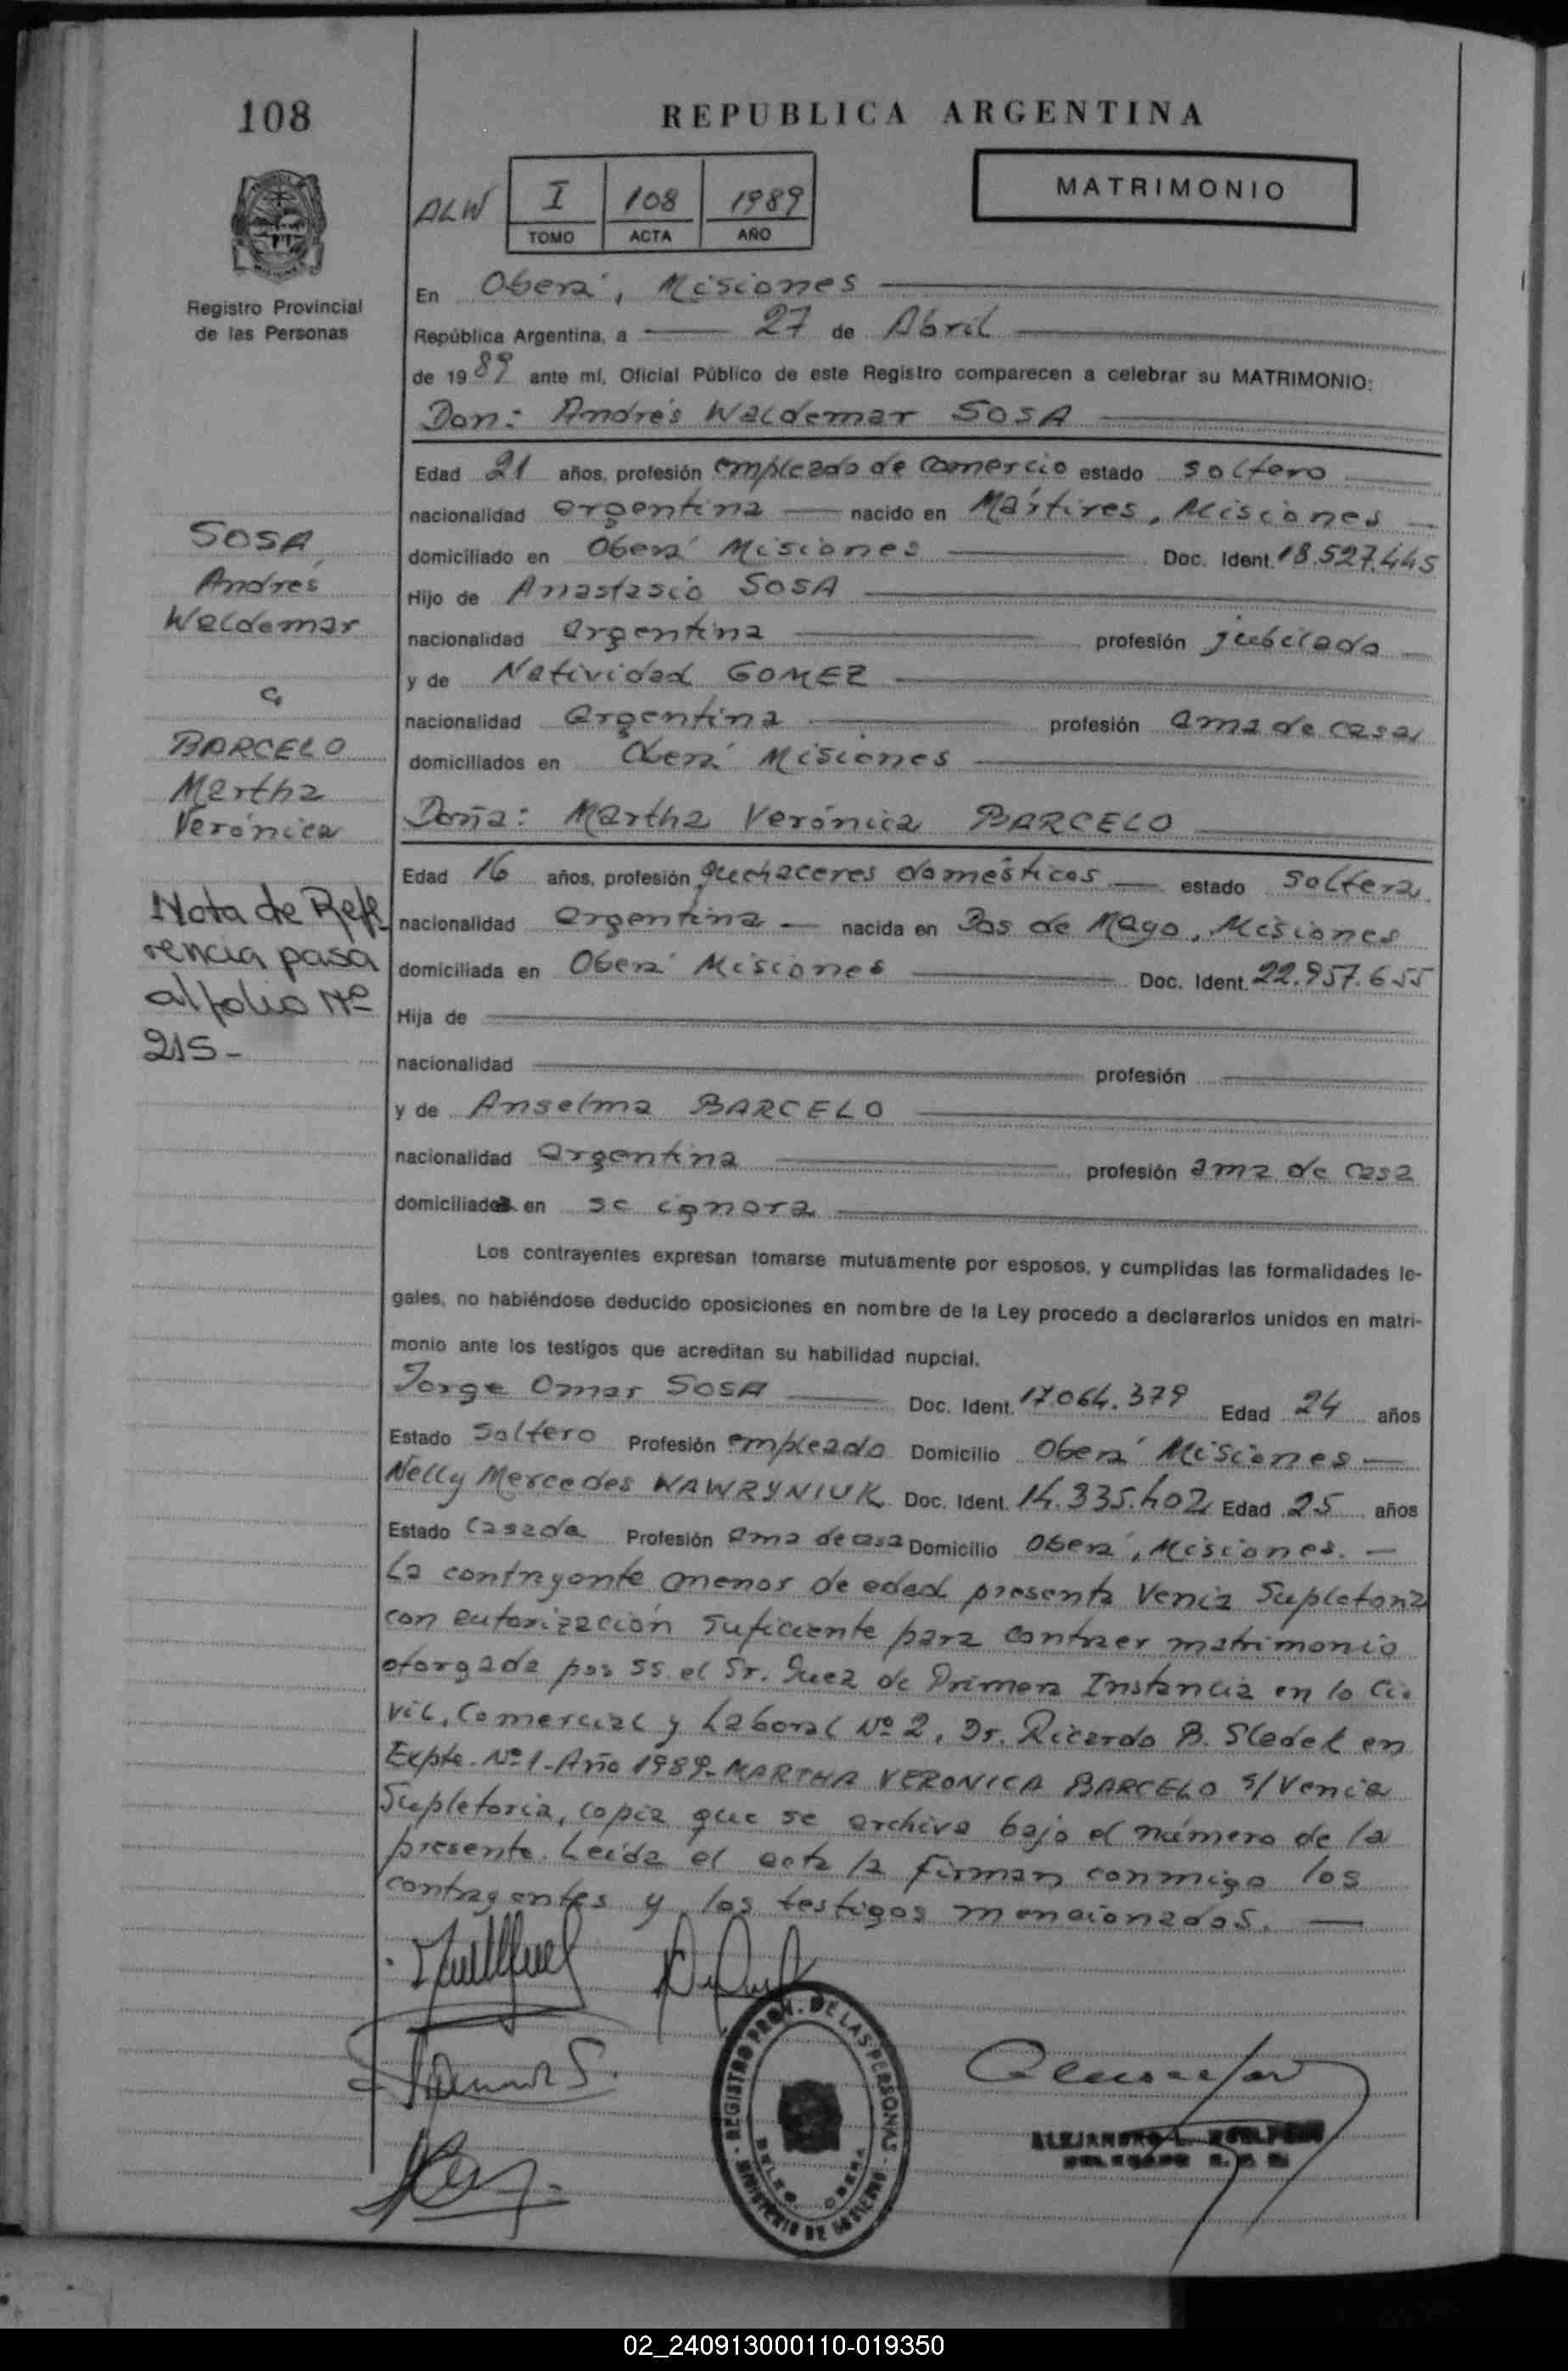 108
REPUBLICA ARGENTINA
MATRIMONIO
ALW
I 108 1989
TOMO ACTA AÑO
Registro Provincial
de las Personas
En Oberá, Misiones
República Argentina, a 27 de Abril
de 1989 ante mí, Oficial Público de este Registro comparecen a celebrar su MATRIMONIO:
Don: Andrés Waldemar SOSA
Edad 21 años, profesión empleado de comercio estado soltero
nacionalidad argentina nacido en Mártires, Misiones
domiciliado en Oberá Misiones Doc. Ident. 18.527.445
Hijo de Anastasio SOSA
nacionalidad argentina profesión jubilado
y de Natividad GOMEZ
nacionalidad argentina profesión ama de casa
domiciliados en Oberá Misiones
Doña: Martha Verónica BARCELO
Edad 16 años, profesión quehaceres domésticos estado soltera
nacionalidad argentina nacida en Dos de Mayo, Misiones
domiciliada en Oberá Misiones Doc. Ident. 22.957.655
Hija de
nacionalidad profesión
y de Anselma BARCELO
nacionalidad argentina profesión ama de casa
domiciliados en se ignora
SOSA
Andrés
Waldemar
c/
BARCELO
Martha
Verónica
Nota de Refe
rencia pasa
al folio Nº
215-
Los contrayentes expresan tomarse mutuamente por esposos, y cumplidas las formalidades le-
gales, no habiéndose deducido oposiciones en nombre de la Ley procedo a declararlos unidos en matri-
monio ante los testigos que acreditan su habilidad nupcial.
Jorge Omar SOSA Doc. Ident. 17.064.379 Edad 24 años
Estado Soltero Profesión empleado Domicilio Oberá Misiones
Nelly Mercedes WAWRYNIUK Doc. Ident. 14.335.402 Edad 25 años
Estado Casada Profesión ama de casa Domicilio Oberá, Misiones.
La contrayente menor de edad presenta Venia Supletoria
con autorización suficiente para contraer matrimonio
otorgada por SS. el Sr. Juez de Primera Instancia en lo Ci-
vil, Comercial y Laboral Nº 2, Dr. Ricardo B. Sledel en
Expte. Nº 1-Año 1989-MARTHA VERONICA BARCELO s/Venia
Supletoria, copia que se archiva bajo el número de la
presente. Leída el acta la firman conmigo los
contrayentes y los testigos mencionados.
REGISTRO PROV. DE LAS PERSONAS
MINISTERIO DE GOBIERNO
DELEG. OBERA
02_240913000110-019350